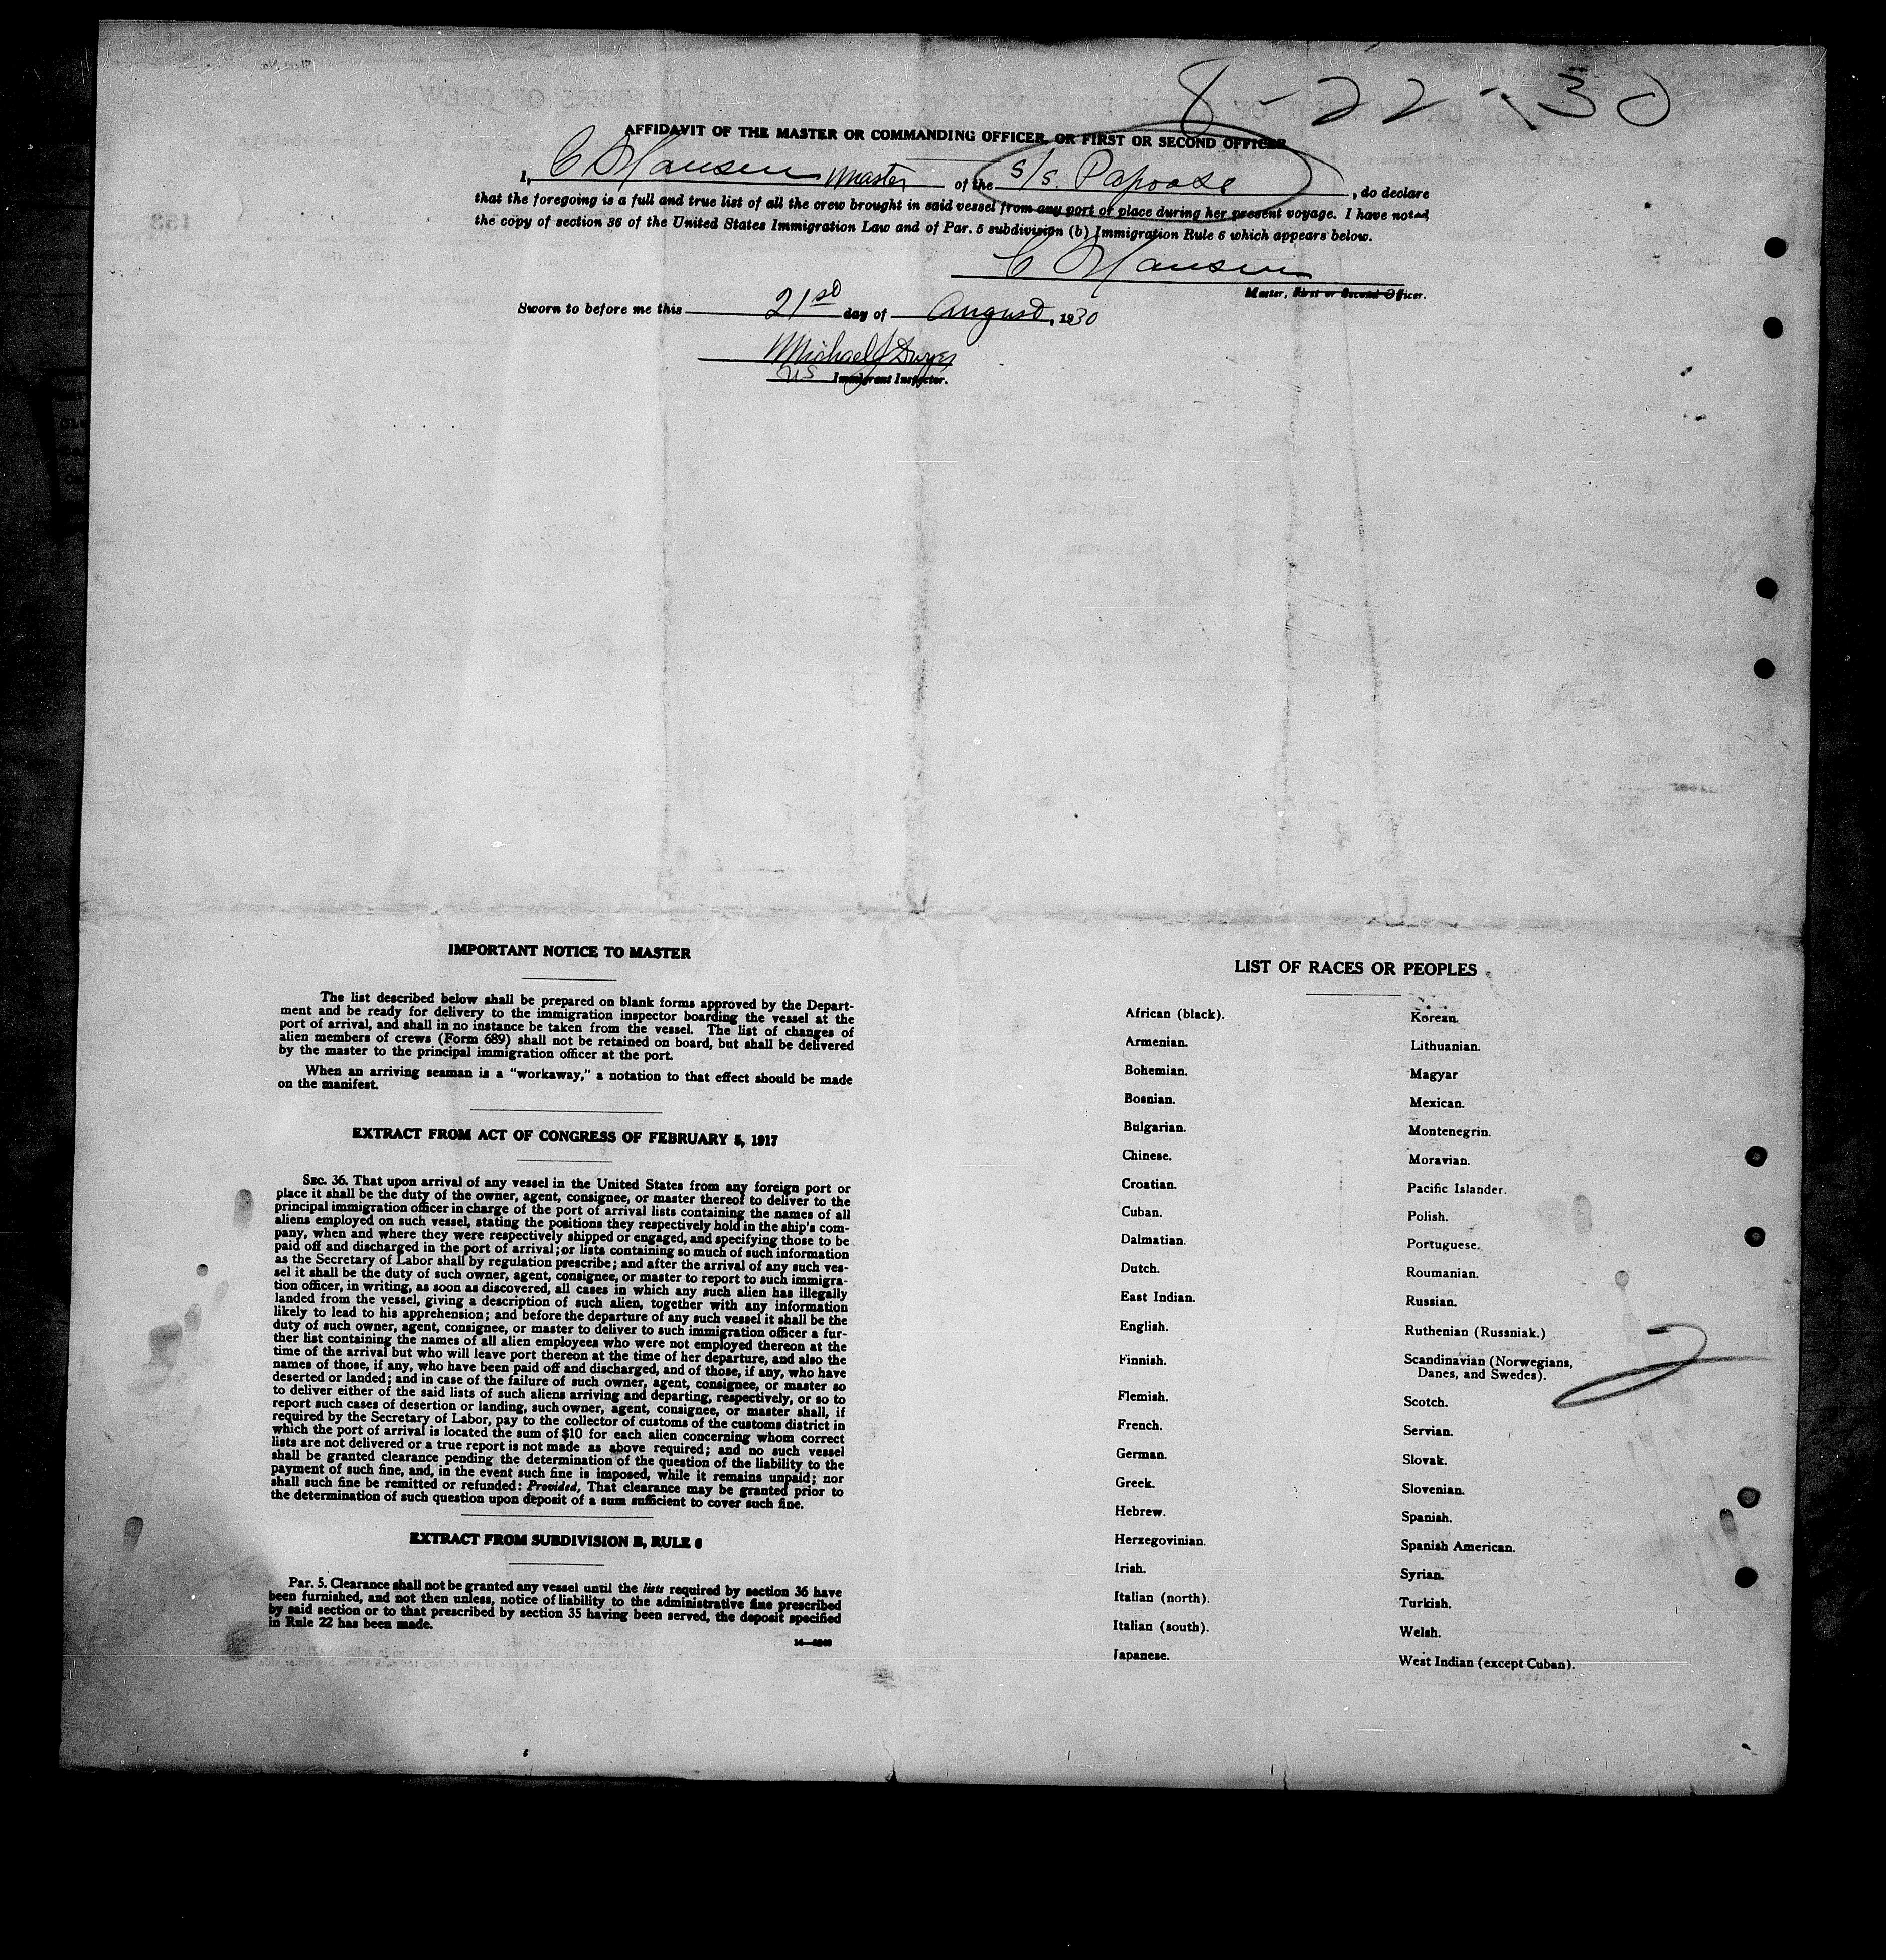 8-22-30
AFFIDAVIT OF THE MASTER OR COMMANDING OFFICER, OR FIRST OR SECOND OFFICER
I, C Hansen Master of the S/S. Papoose, do declare
that the foregoing is a full and true list of all the crew brought in said vessel from any port or place during her present voyage. I have noted
the copy of section 36 of the United States Immigration Law and of Par. 5 subdivision (b) Immigration Rule 6 which appears below.
C Hansen
Master, First or Second Officer.
Sworn to before me this 21st day of August, 1930
Michael J Dwyer
US Immigrant Inspector.
IMPORTANT NOTICE TO MASTER
The list described below shall be prepared on blank forms approved by the Depart-
ment and be ready for delivery to the immigration inspector boarding the vessel at the
port of arrival, and shall in no instance be taken from the vessel. The list of changes of
alien members of crews (Form 689) shall not be retained on board, but shall be delivered
by the master to the principal immigration officer at the port.
When an arriving seaman is a "workaway," a notation to that effect should be made
on the manifest.
EXTRACT FROM ACT OF CONGRESS OF FEBRUARY 5, 1917
SEC. 36. That upon arrival of any vessel in the United States from any foreign port or
place it shall be the duty of the owner, agent, consignee, or master thereof to deliver to the
principal immigration officer in charge of the port of arrival lists containing the names of all
aliens employed on such vessel, stating the positions they respectively hold in the ship's com-
pany, when and where they were respectively shipped or engaged, and specifying those to be
paid off and discharged in the port of arrival; or lists containing so much of such information
as the Secretary of Labor shall by regulation prescribe; and after the arrival of any such ves-
sel it shall be the duty of such owner, agent, consignee, or master to report to such immigra-
tion officer, in writing, as soon as discovered, all cases in which any such alien has illegally
landed from the vessel, giving a description of such alien, together with any information
likely to lead to his apprehension; and before the departure of any such vessel it shall be the
duty of such owner, agent, consignee, or master to deliver to such immigration officer a fur-
ther list containing the names of all alien employees who were not employed thereon at the
time of the arrival but who will leave port thereon at the time of her departure, and also the
names of those, if any, who have been paid off and discharged, and of those, if any, who have
deserted or landed; and in case of the failure of such owner, agent, consignee, or master so
to deliver either of the said lists of such aliens arriving and departing, respectively, or so to
report such cases of desertion or landing, such owner, agent, consignee, or master shall, if
required by the Secretary of Labor, pay to the collector of customs of the customs district in
which the port of arrival is located the sum of $10 for each alien concerning whom correct
lists are not delivered or a true report is not made as above required; and no such vessel
shall be granted clearance pending the determination of the question of the liability to the
payment of such fine, and, in the event such fine is imposed, while it remains unpaid; nor
shall such fine be remitted or refunded: Provided, That clearance may be granted prior to
the determination of such question upon deposit of a sum sufficient to cover such fine.
EXTRACT FROM SUBDIVISION B, RULE 6
Par. 5. Clearance shall not be granted any vessel until the lists required by section 36 have
been furnished, and not then unless, notice of liability to the administrative fine prescribed
by said section or to that prescribed by section 35 having been served, the deposit specified
in Rule 22 has been made.
LIST OF RACES OR PEOPLES
African (black).
Armenian.
Bohemian.
Bosnian.
Bulgarian.
Chinese.
Croatian.
Cuban.
Dalmatian.
Dutch.
East Indian.
English.
Finnish.
Flemish.
French.
German.
Greek.
Hebrew.
Herzegovinian.
Irish.
Italian (north).
Italian (south).
Japanese.
Korean.
Lithuanian.
Magyar
Mexican.
Montenegrin.
Moravian.
Pacific Islander.
Polish.
Portuguese.
Roumanian.
Russian.
Ruthenian (Russniak.)
Scandinavian (Norwegians,
Danes, and Swedes).
Scotch.
Servian.
Slovak.
Slovenian.
Spanish.
Spanish American.
Syrian.
Turkish.
Welsh.
West Indian (except Cuban).